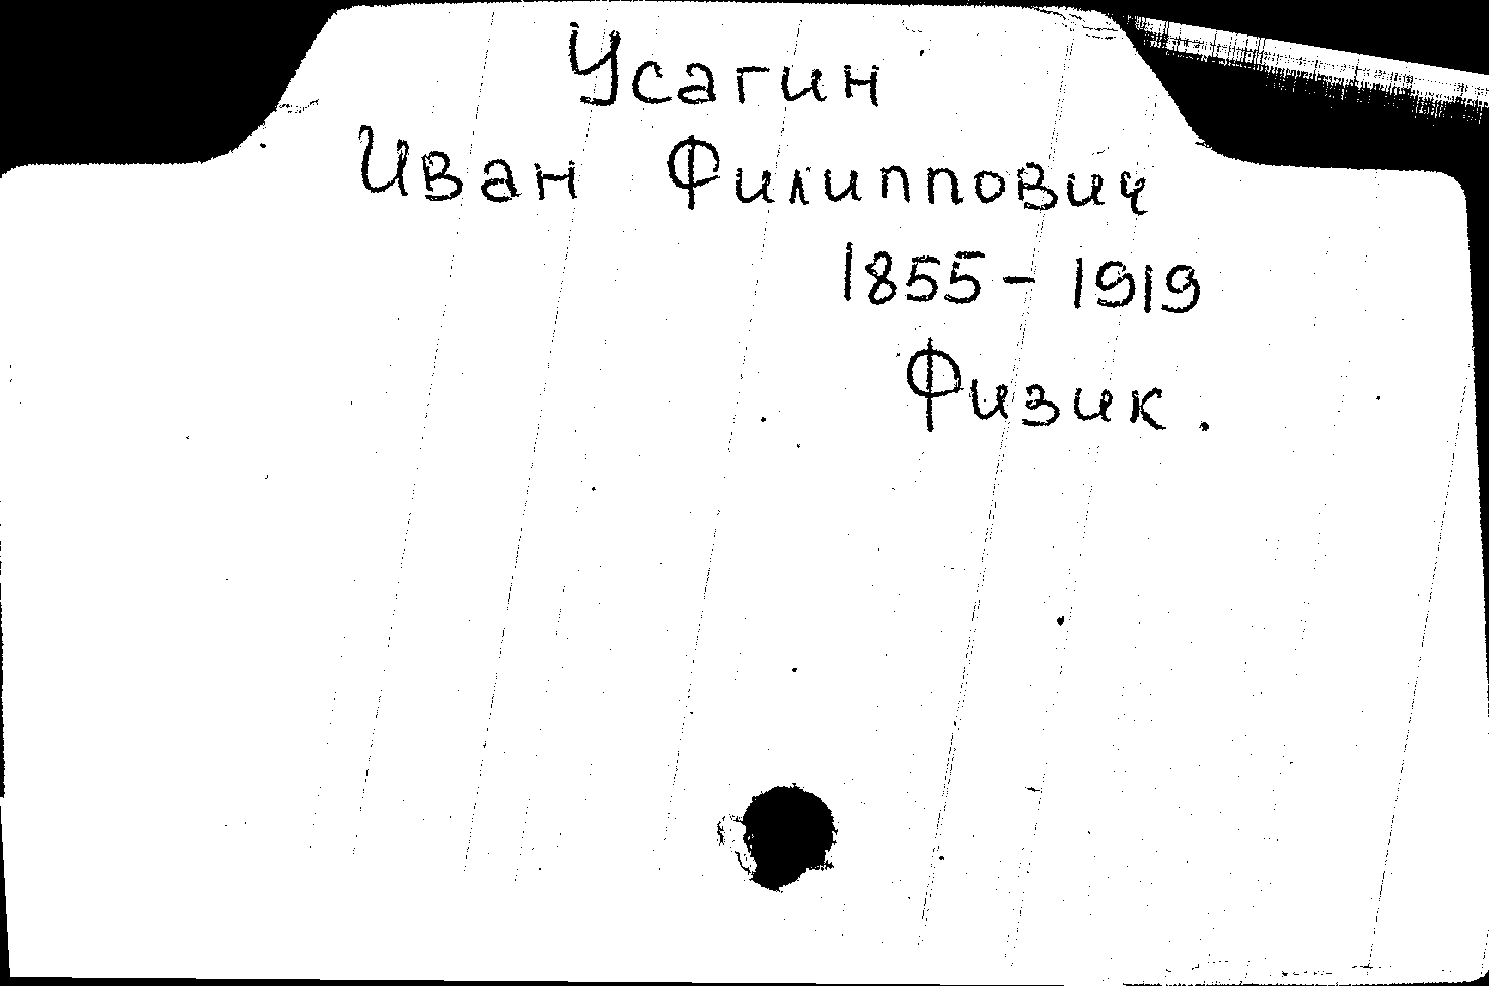 Усагин
Иван Филиппович
1855 - 1919
Физик.